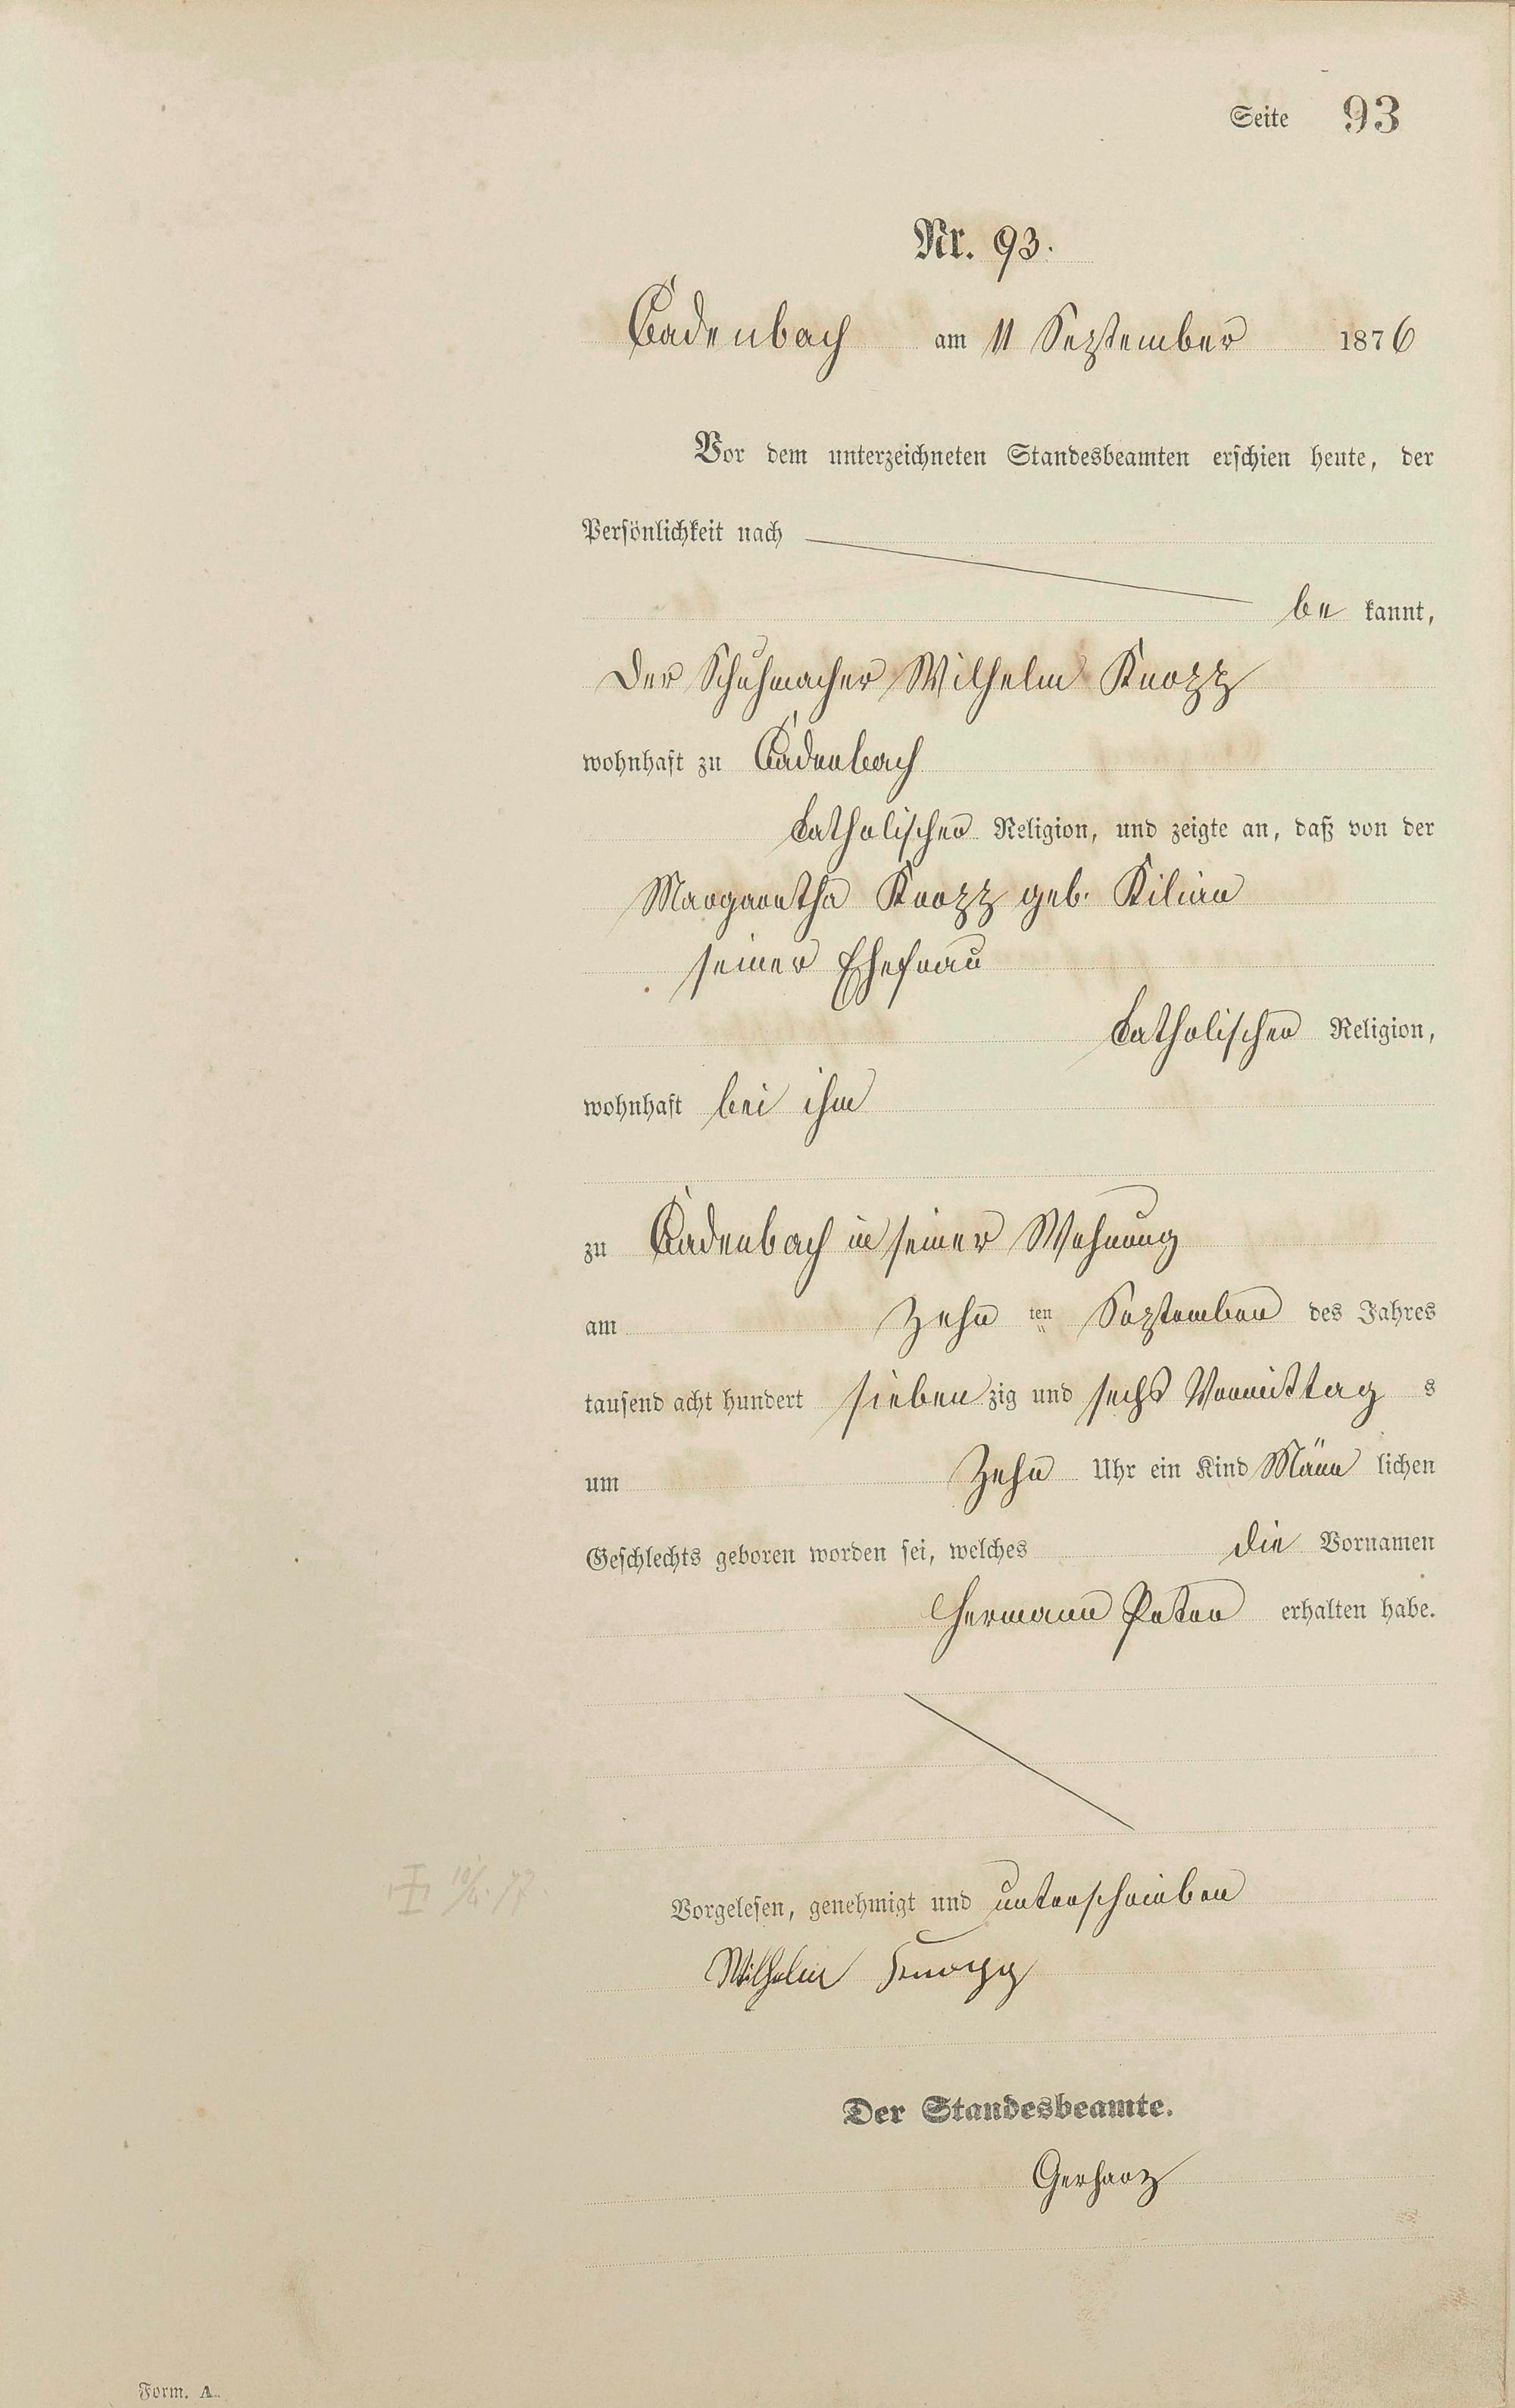 Seite 93
Nr. 93.
Cadenbach am 11 September 1876
Vor dem unterzeichneten Standesbeamten erschien heute, der
Persönlichkeit nach
be kannt,
Der Schuhmacher Wilhelm Knopp
wohnhaft zu Cadenbach
katholischer Religion, und zeigte an, daß von der
Margaretha Knopp geb. Kilian
seiner Ehefrau
katholischer Religion,
wohnhaft bei ihm
zu Cadenbach in seiner Wohnung
am Zehn ten September des Jahres
tausend acht hundert sieben zig und sechs Vormittag s
um Zehn Uhr ein Kind Männ lichen
Geschlechts geboren worden sei, welches die Vornamen
Hermann Peter erhalten habe.
Vorgelesen, genehmigt und unterschrieben
Wilhelm Knopp
Der Standesbeamte.
Gerharz
Form. A.